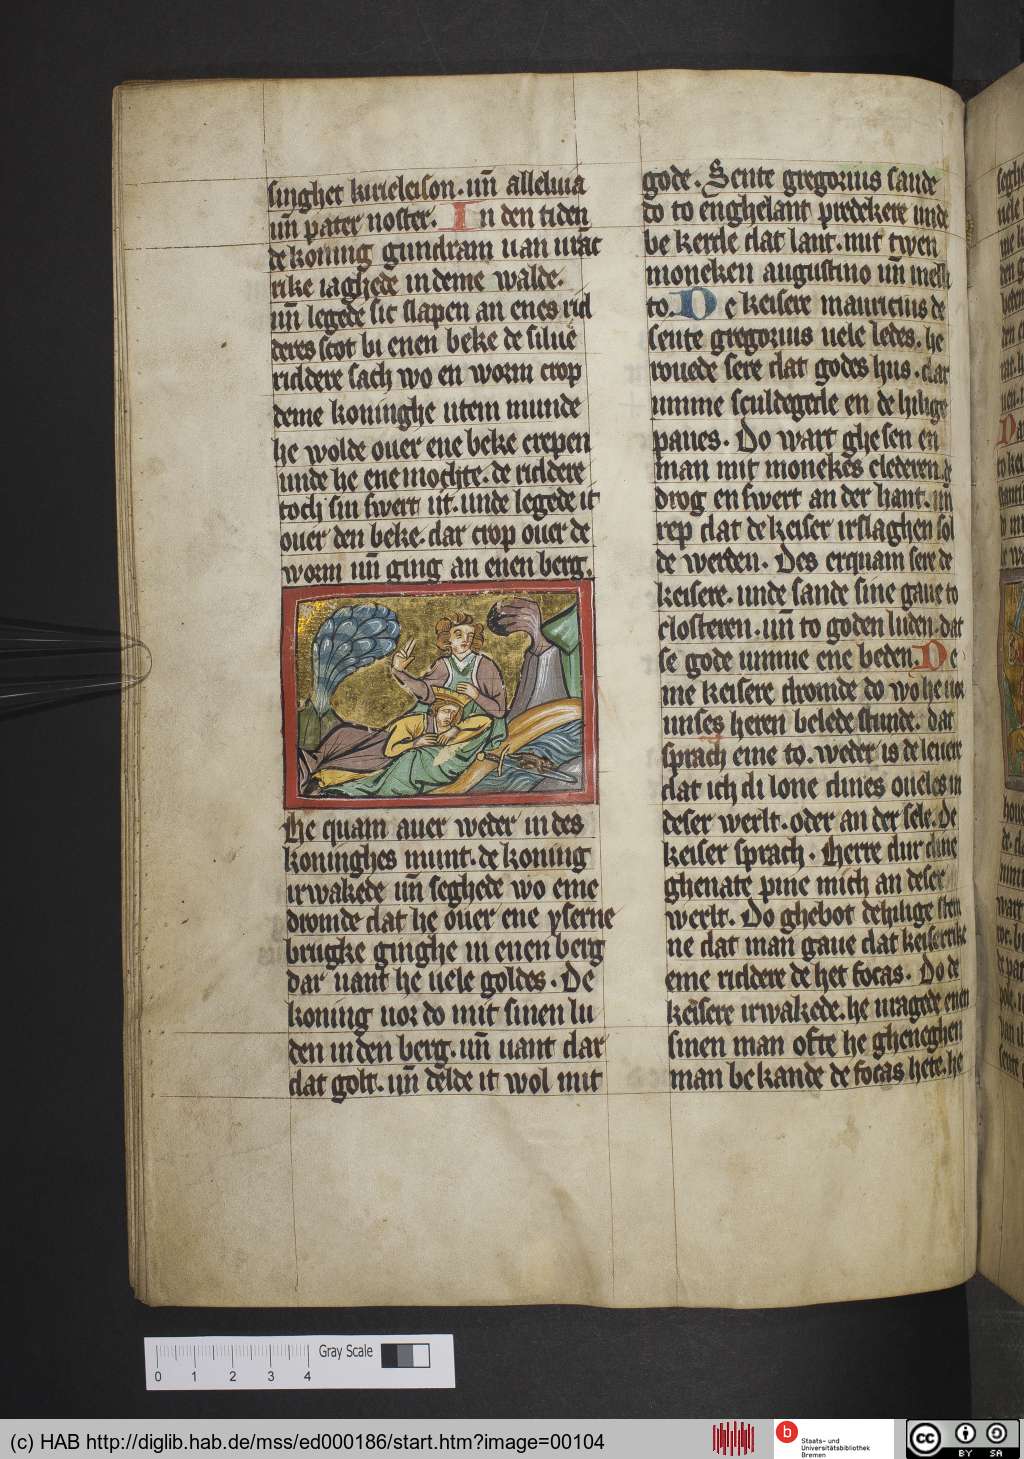 singhet kirieleison. uñ alleluia
uñ pater noster. In den tiden
de koning gundram uan urāc
rike iaghede in deme walde.
uñ legede sic slapen an enes rid
deres scot bi enen beke de silue
riddere sach wo en worm crop
deme koninghe utem munde
he wolde ouer ene beke crepen
unde he ene mochte. de riddere
toch sin swert ut. unde legede it
ouer den beke. dar crop ouer de
worm uñ ging an enen berg.
He quam auer weder in des
koninghes munt. de koning
irwakede uñ seghede wo eme
dromde dat he ouer ene yserne
brugke ginghe in enen berg
dar uant he uele goldes. De
koning uor do mit sinen lu
den in den berg. uñ uant dar
dat golt. uñ delde it wol mit
gode. Sente gregorius sande
do to enghelant predekere unde
bekerde dat lant. mit twen
moneken augustino uñ melli
to. De keisere mauricius de
sente gregorius uele ledes. he
rouede sere dat godes hus. dar
umme sculdegede en de hilige
paues. Do wart ghesen en
man mit monekes clederen. de
drog en swert an der hant. uñ
rep dat de keiser irslaghen sol
de werden. Des erquam sere de
keisere. unde sande sine gaue to
closteren. uñ to goden luden. dat
se gode umme ene beden. De
me keisere dromde do wo he uor
unses heren belede stunde. dat
sprach eme to. weder is de leuere
dat ich di lone dines oueles in
deser werlt. oder an der sele. De
keiser sprach. Herre dur dine
ghenate pine mich an deser
werlt. Do ghebot de hilige stem
ne dat man gaue dat keiserrike
eme riddere de het focas. Do de
keisere irwakede. he uragede enen
sinen man ofte he gheneghen
man bekande de focas hete. he
0 1 2 3 4
Gray Scale
(c) HAB http://diglib.hab.de/mss/ed000186/start.htm?image=00104
Staats- und
Universitätsbibliothek
Bremen
BY SA